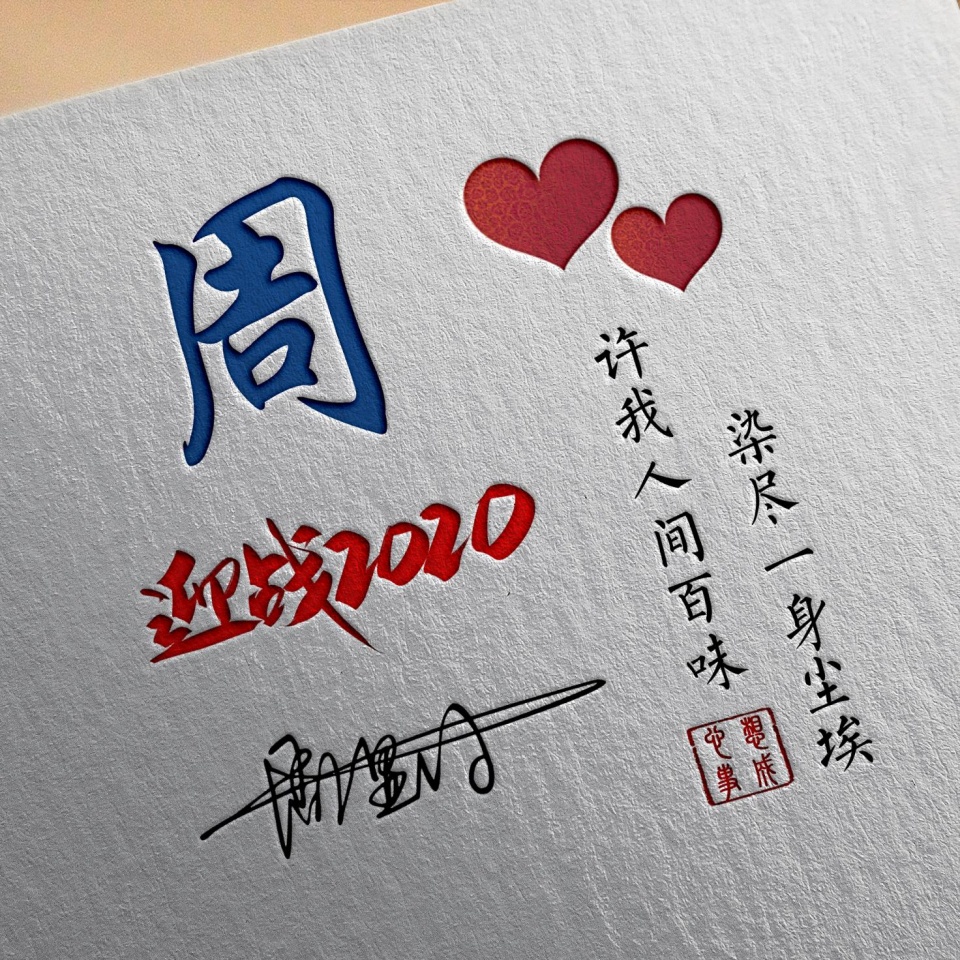 周
迎战2020
染尽一身尘埃
许我人间百味
心想事成